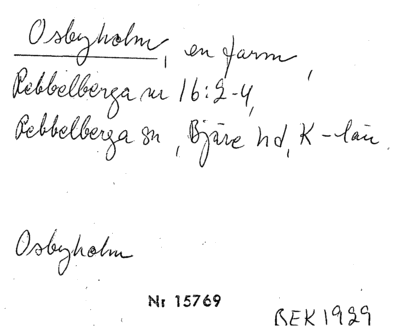 Osbyholm, en farm,
Rebbelberga nr 16:2-4,
Rebbelberga sn, Bjäre hd, K-län.
Osbyholm
Nr 15769
BEK 1929